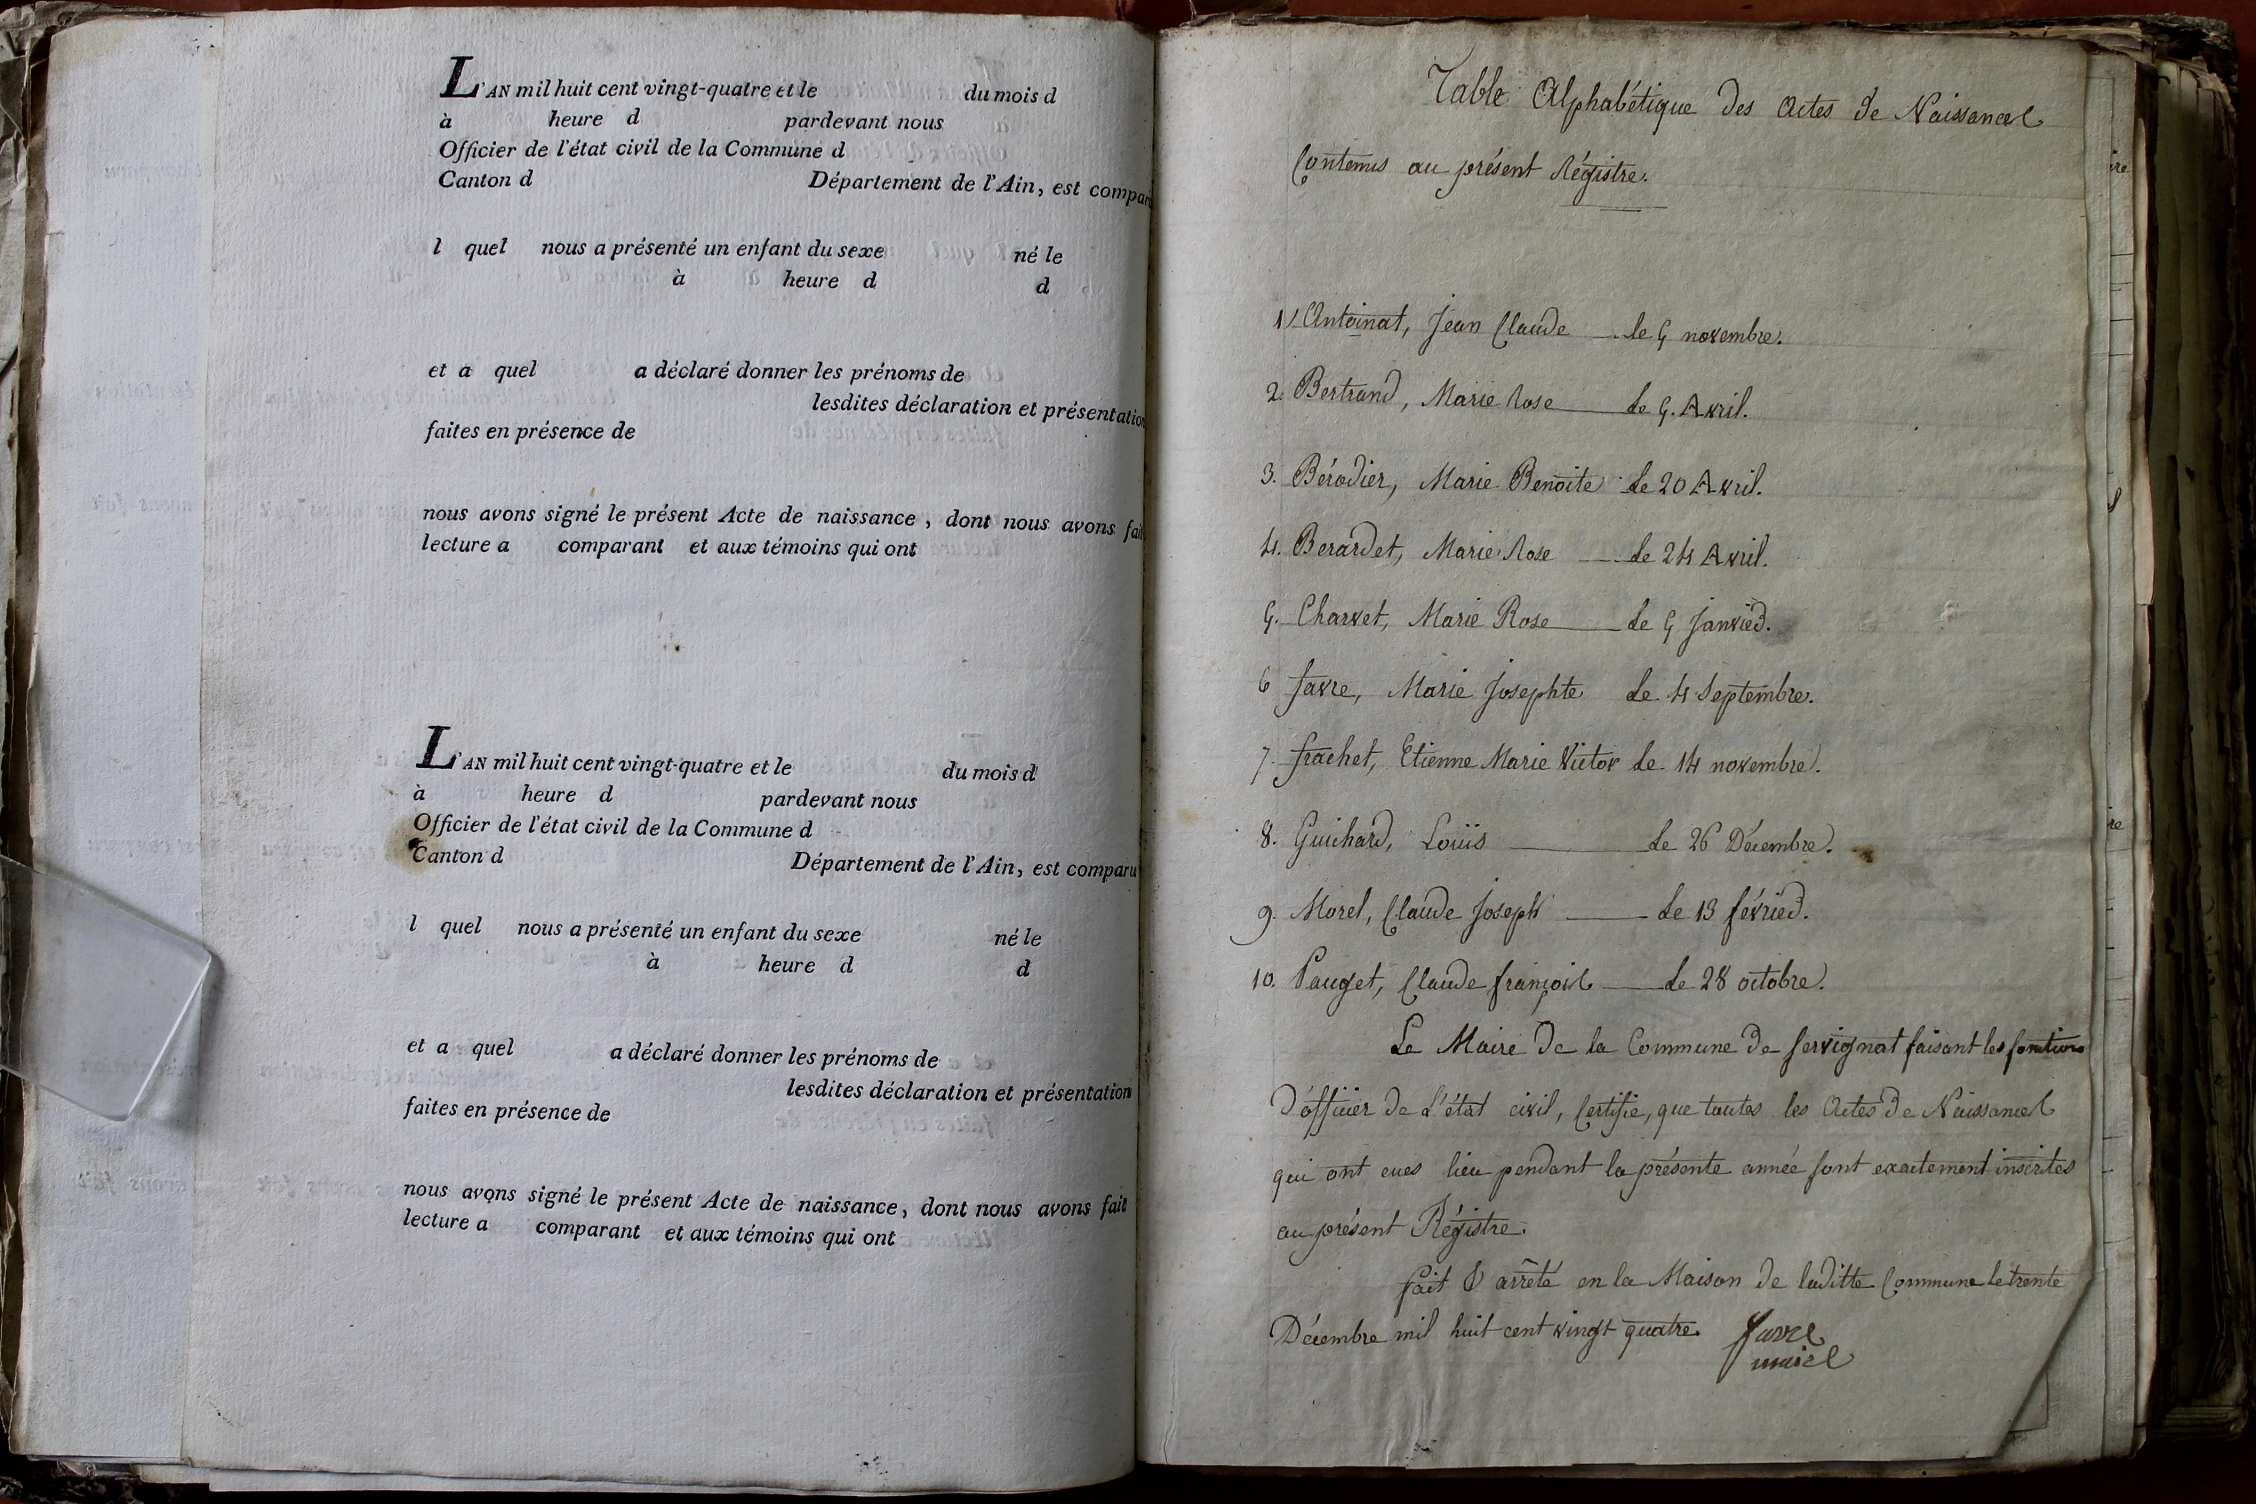 L'AN mil huit cent vingt-quatre et le du mois d
à heure d pardevant nous
Officier de l'état civil de la Commune d
Canton d Département de l'Ain, est compar
l quel nous a présenté un enfant du sexe né le
à heure d d
et a quel a déclaré donner les prénoms de
lesdites déclaration et présentation
faites en présence de
nous avons signé le présent Acte de naissance, dont nous avons fait
lecture a comparant et aux témoins qui ont
L'AN mil huit cent vingt-quatre et le du mois d
à heure d pardevant nous
Officier de l'état civil de la Commune d
Canton d Département de l'Ain, est comparu
l quel nous a présenté un enfant du sexe né le
à heure d d
et a quel a déclaré donner les prénoms de
lesdites déclaration et présentation
faites en présence de
nous avons signé le présent Acte de naissance, dont nous avons fait
lecture a comparant et aux témoins qui ont
Table Alphabétique des Actes de Naissances
Contenus au présent Régistre.
1. Antoinat, Jean Claude le 5 novembre.
2. Bertrand, Marie Rose le 5. Avril.
3. Bérodier, Marie Benoite le 20 Avril.
4. Berardet, Marie Rose le 24 Avril.
5. Charvet, Marie Rose le 5 Janvier.
6 favre, Marie Josephte le 4 Septembre.
7. frachet, Etienne Marie Victor le 14 novembre.
8. Guichard, Loüis le 26 Décembre.
9. Morel, Claude Joseph le 13 février.
10. Pauget, Claude françois le 28 octobre.
Le Maire de la Commune de Servignat faisant les fonctions
D'officier de L'état civil, Certifie, que toutes les Actes de Naissances
qui ont eues lieu pendant la présente année sont exactement inscrites
au présent Régistre.
fait & arrêté en la Maison de laditte Commune le trente
Décembre mil huit cent vingt quatre. favre
maire